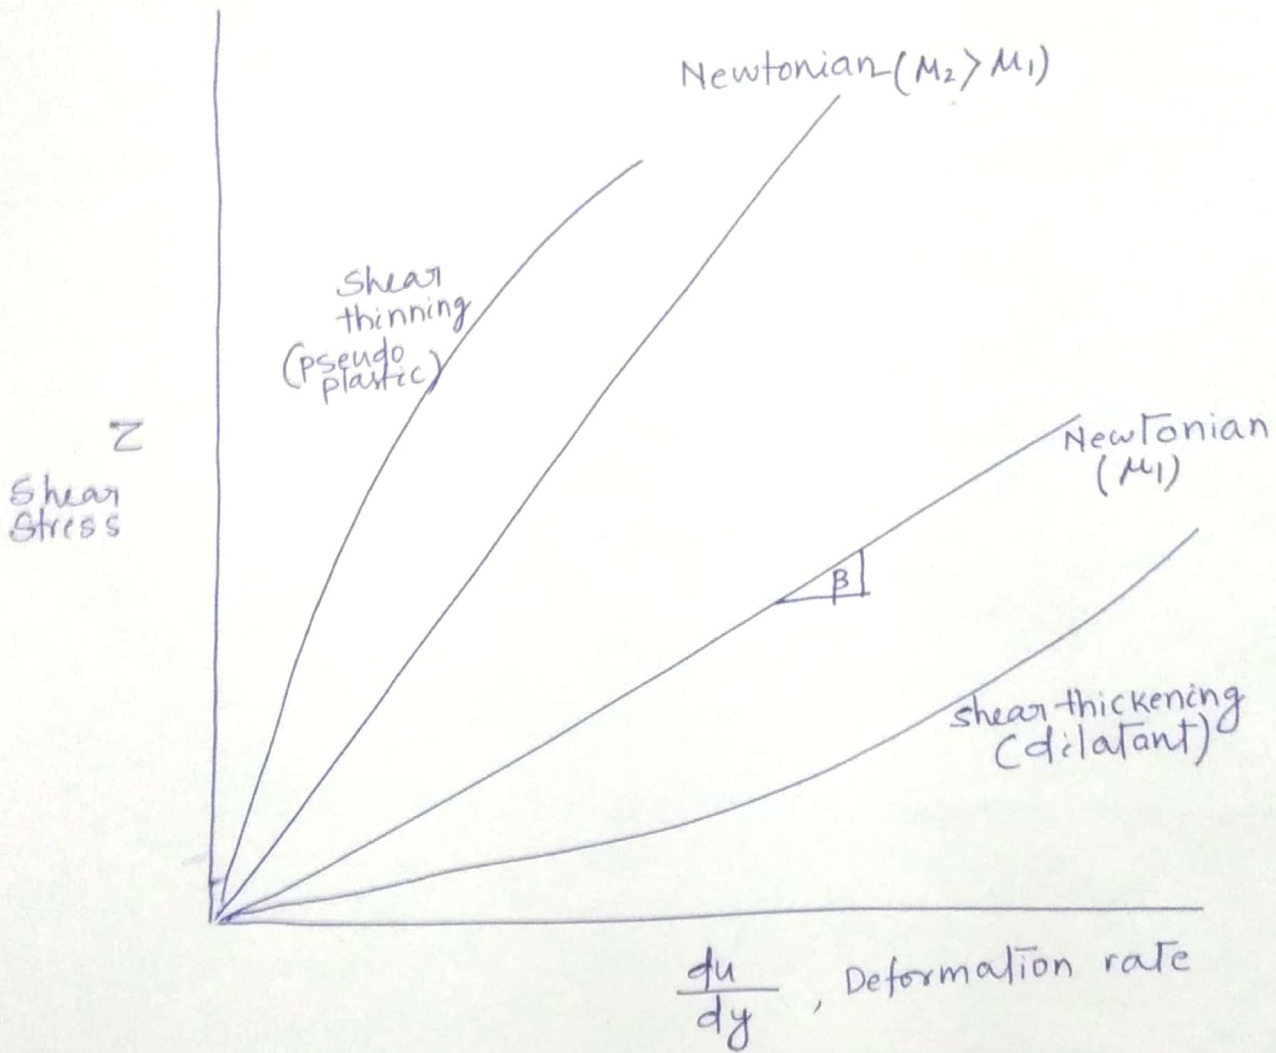 Newtonian (μ₂ > μ₁)
Shear
thinning
(pseudo
plastic)
τ
Shear
Stress
Newtonian
(μ₁)
β
shear thickening
(dilatant)
du
dy
, Deformation rate